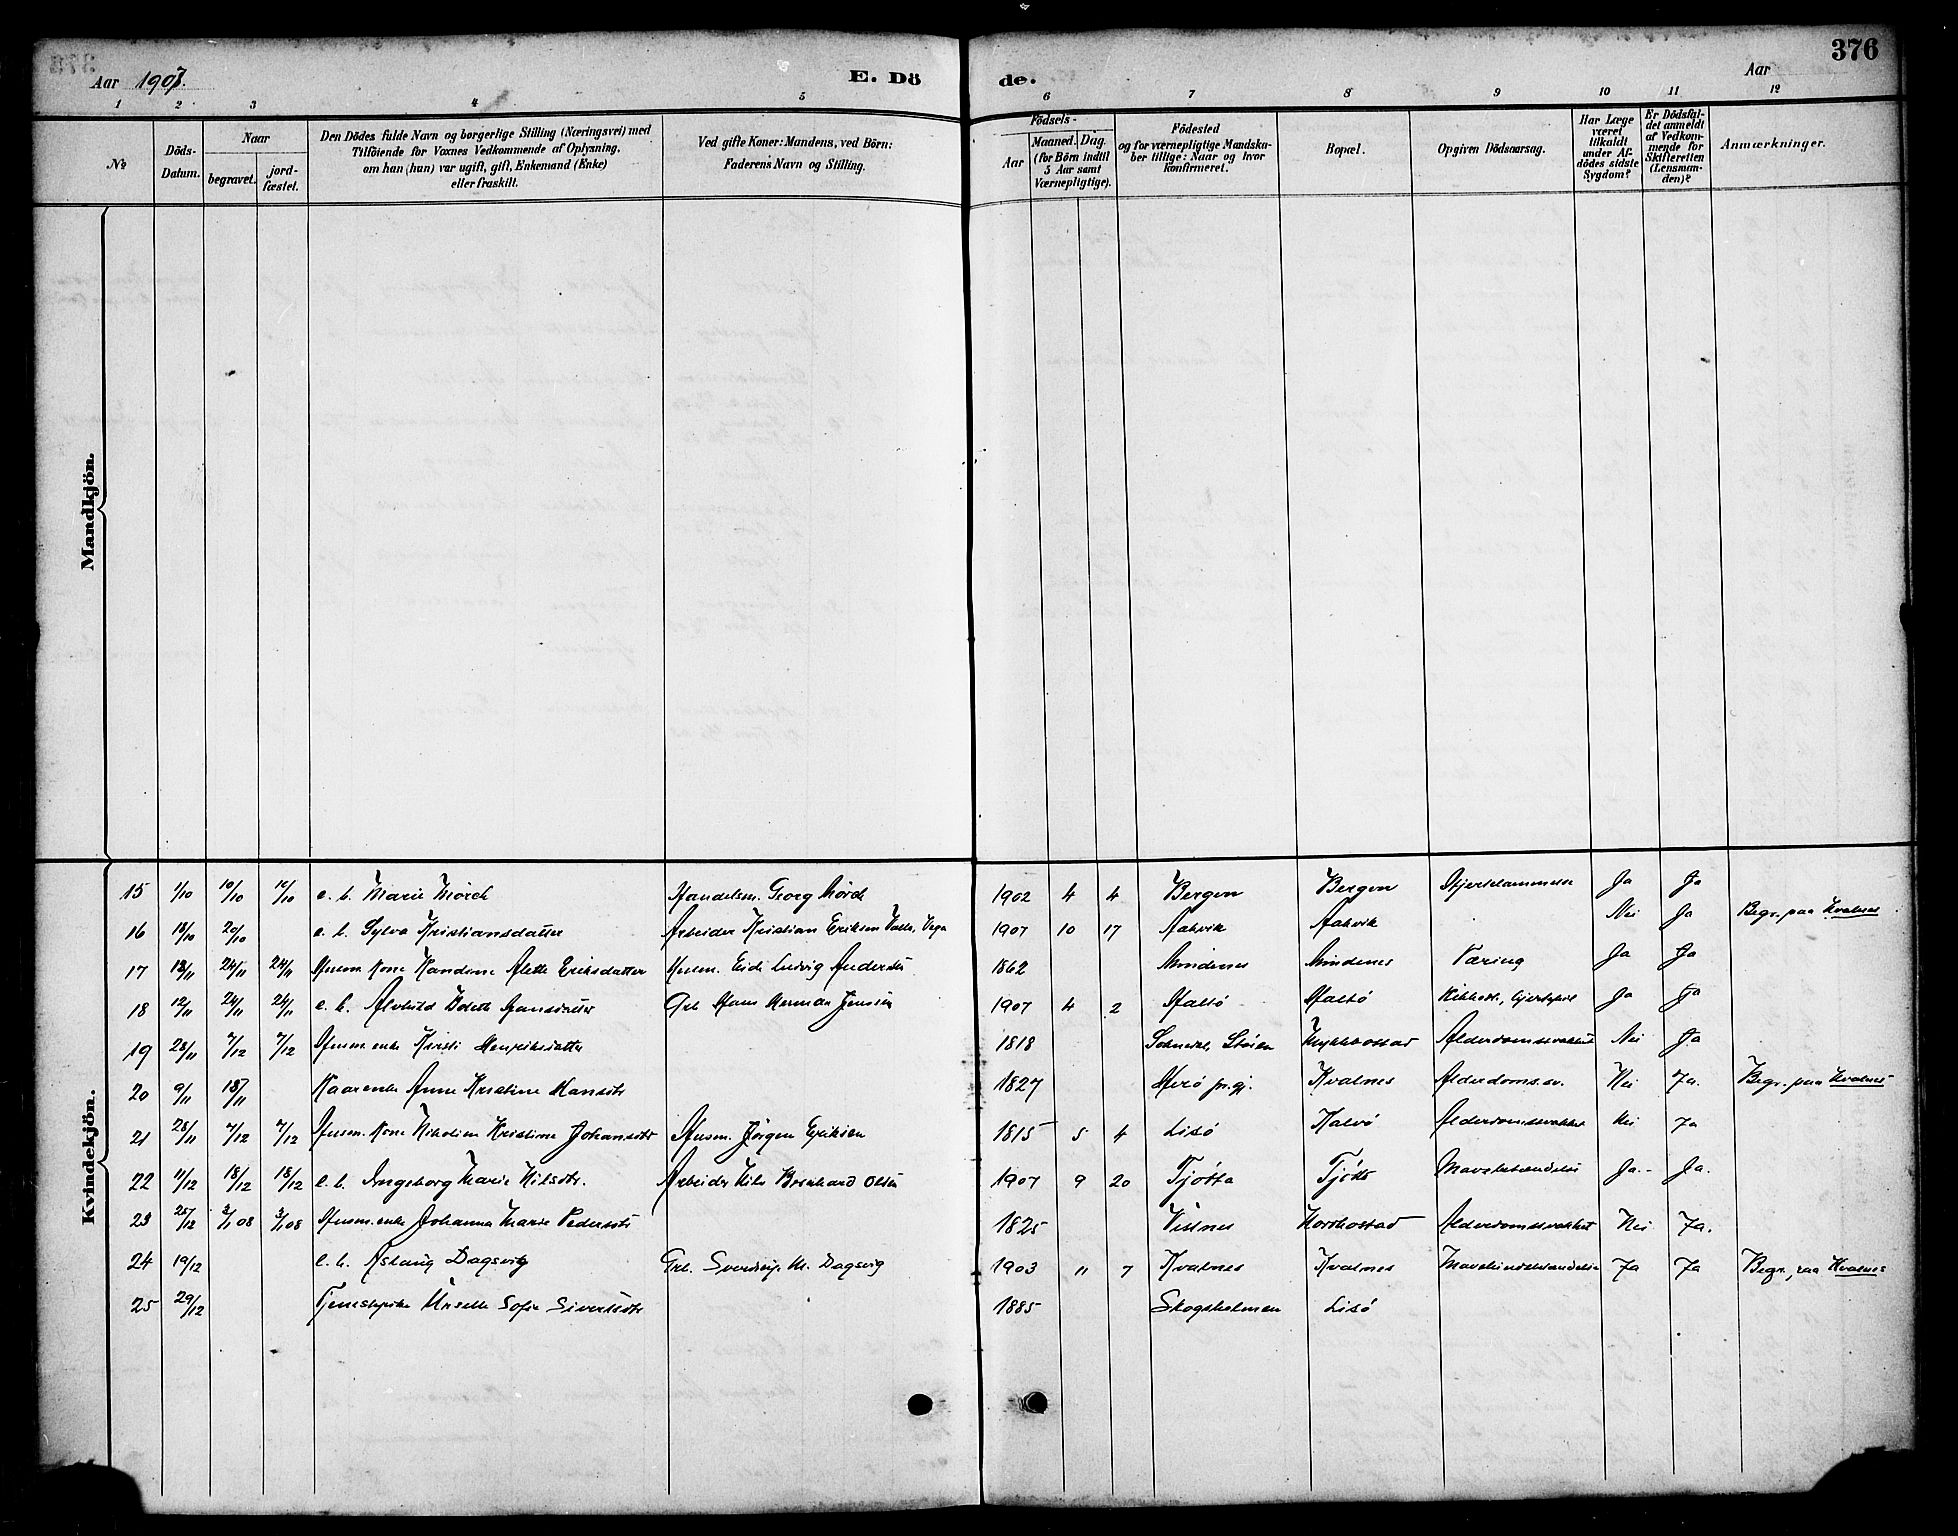 376
Aar 1907. E. Dö de. Aar
1 2 3 4 5 6 7 8 9 10 11 12
№
Döds-Datum.
Naar
begravet.
jord-fæstet.
Den Dödes fulde Navn og borgerlige Stilling (Næringsvei) med
Tilföiende for Voxnes Vedkommende af Oplysning,
om han (hun) var ugift, gift, Enkemand (Enke)
eller fraskilt.
Ved gifte Koner: Mandens, ved Börn:
Faderens Navn og Stilling.
Födsels-
Aar
Maaned. Dag.
(for Börn indtil
5 Aar samt
Værnepligtige).
Födested
og for værnepligtige Mandska-
ber tillige: Naar og hvor
konfirmeret.
Bopæl.
Opgiven Dödsaarsag.
Har Læge
været
tilkaldt
under Af-
dödes sidste
Sygdom?
Er Dödsfal-
det anmeldt
af Vedkom-
mende for
Skifteretten
(Lensman-
den)?
Anmærkninger.
Mandkjön.
Kvindekjön.
15 1/10 10/10 10/10 e. b. Marie Mörch Handelsm. Georg Mörch 1902 4 4 Bergen Bergen Hjertelammelse Ja Ja
16 18/10 20/10 e. b. Sylva Kristiansdatter Arbeider Kristian Eriksen Vega 1907 10 17 Aakvik Aakvik Nei Ja Begr. paa Kvalnes
17 13/11 24/11 24/11 Husm. Kone Alette Eriksdatter Husm. Ludvig Anders 1862 Mindenes Mindenes Tæring Ja Ja
18 12/11 24/11 24/11 e. b. Alvhild Hansdatter Grb. Hans Herman Jensen 1907 4 2 Ja Ja
19 28/11 7/12 7/12 Husm. enke Kirsti Henriksdatter 1818 Alderdomssvakhet Nei Ja
20 9/11 18/11 Kaarenke Anne Kristine Hansdtr 1827 Herö pr.gj. Kvalnes Alderdoms.sv. Nei Ja. Begr. paa Kvalnes
21 28/11 7/12 7/12 Husm. Kone Nikoline Kristine Johansdtr Husm. Jörgen Eriksen 1815 5 4 Lisö Kalvö Alderdomssvakhet Nei Ja
22 11/12 18/12 18/12 e. b. Ingeborg Marie Nilsdtr. Arbeider Nils Bernhard Olsen 1907 9 20 Tjötta Tjötta Ja.- Ja.
23 25/12 3/1 08 3/1 08 Husm. enke Johanna Marie Pedersdtr 1825 Vistnes Nordbostad Alderdomssvakhet Nei Ja.
24 19/12 e. b. Aslaug Dagsvig Grb. M. Dagsvig 1903 11 7 Kvalnes Kvalnes Ja Ja Begr. paa Kvalnes
25 29/12 Tjenestepike Sofie Sivertsdtr 1885 Skogsholmen Lisö